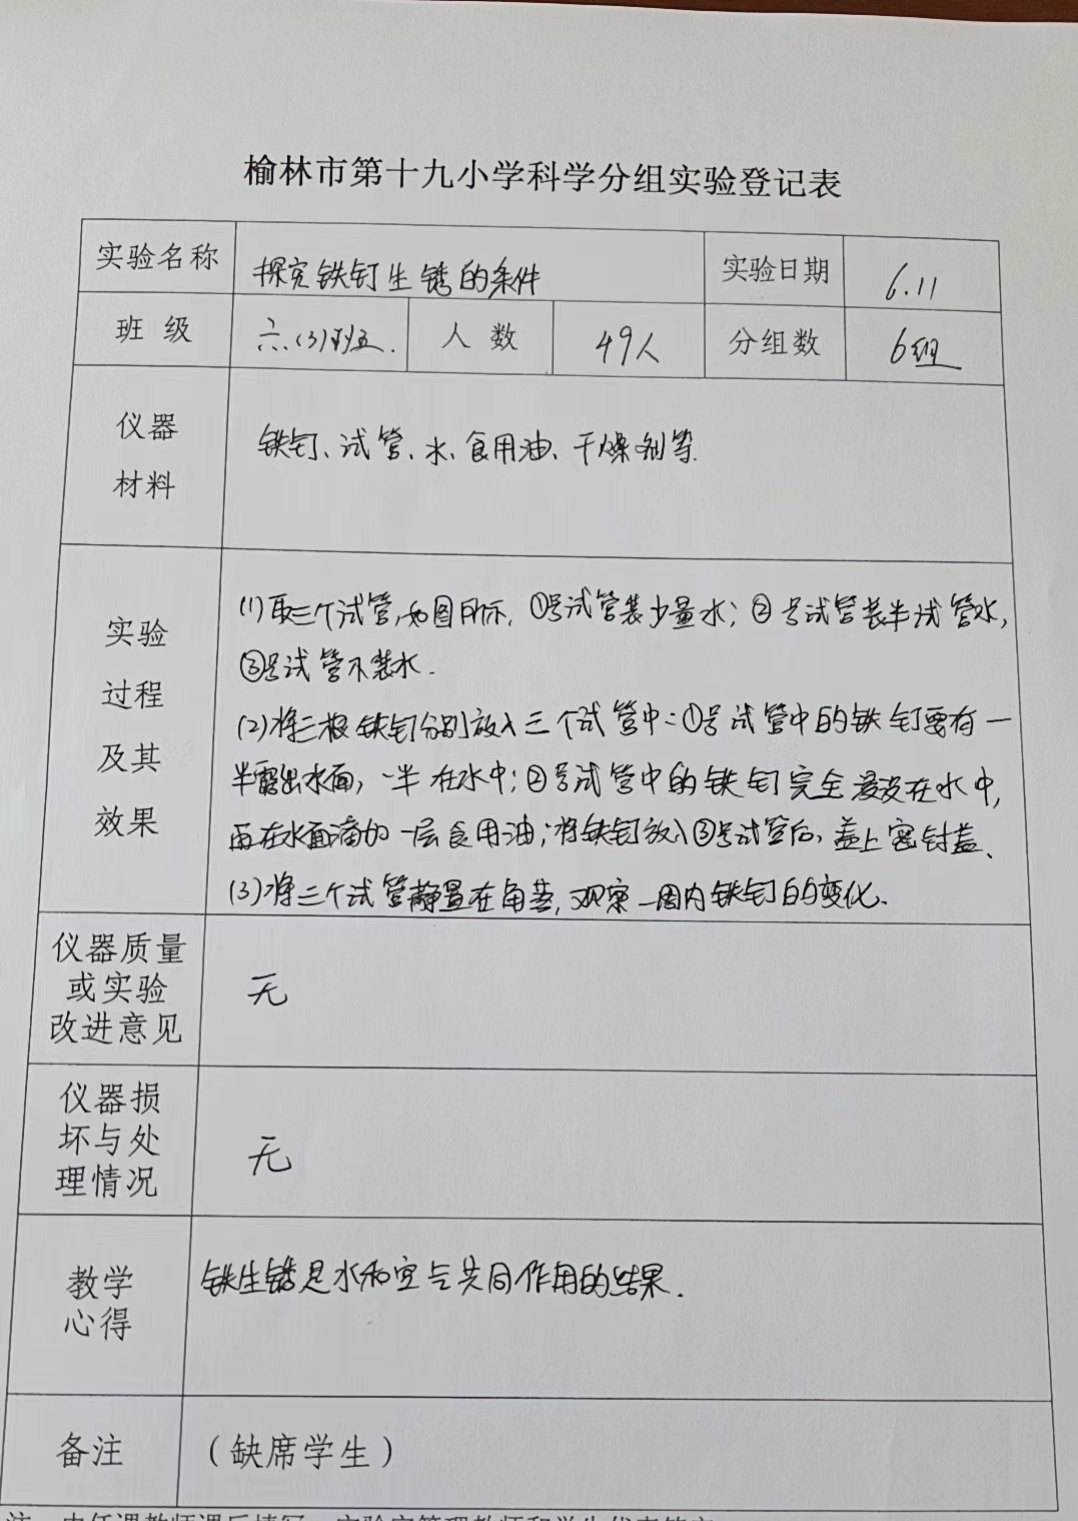 榆林市第十九小学科学分组实验登记表
实验名称 探究铁钉生锈的条件 实验日期 6.11
班 级 六.(3)班. 人 数 49人 分组数 6组
仪器
材料
铁钉、试管、水、食用油、干燥剂等.
实验
过程
及其
效果
(1)取三个试管,如图所示,①号试管装少量水;②号试管装半试管水,
③号试管不装水.
(2)将三根铁钉分别放入三个试管中:①号试管中的铁钉要有一
半露出水面,一半在水中;②号试管中的铁钉完全浸没在水中,
再在水面滴加一层食用油;将铁钉放入③号试管后,盖上密封盖、
(3)将三个试管静置在角落,观察一周内铁钉的变化.
仪器质量
或实验
改进意见
无
仪器损
坏与处
理情况
无
教学
心得
铁生锈是水和空气共同作用的结果.
备注 (缺席学生)